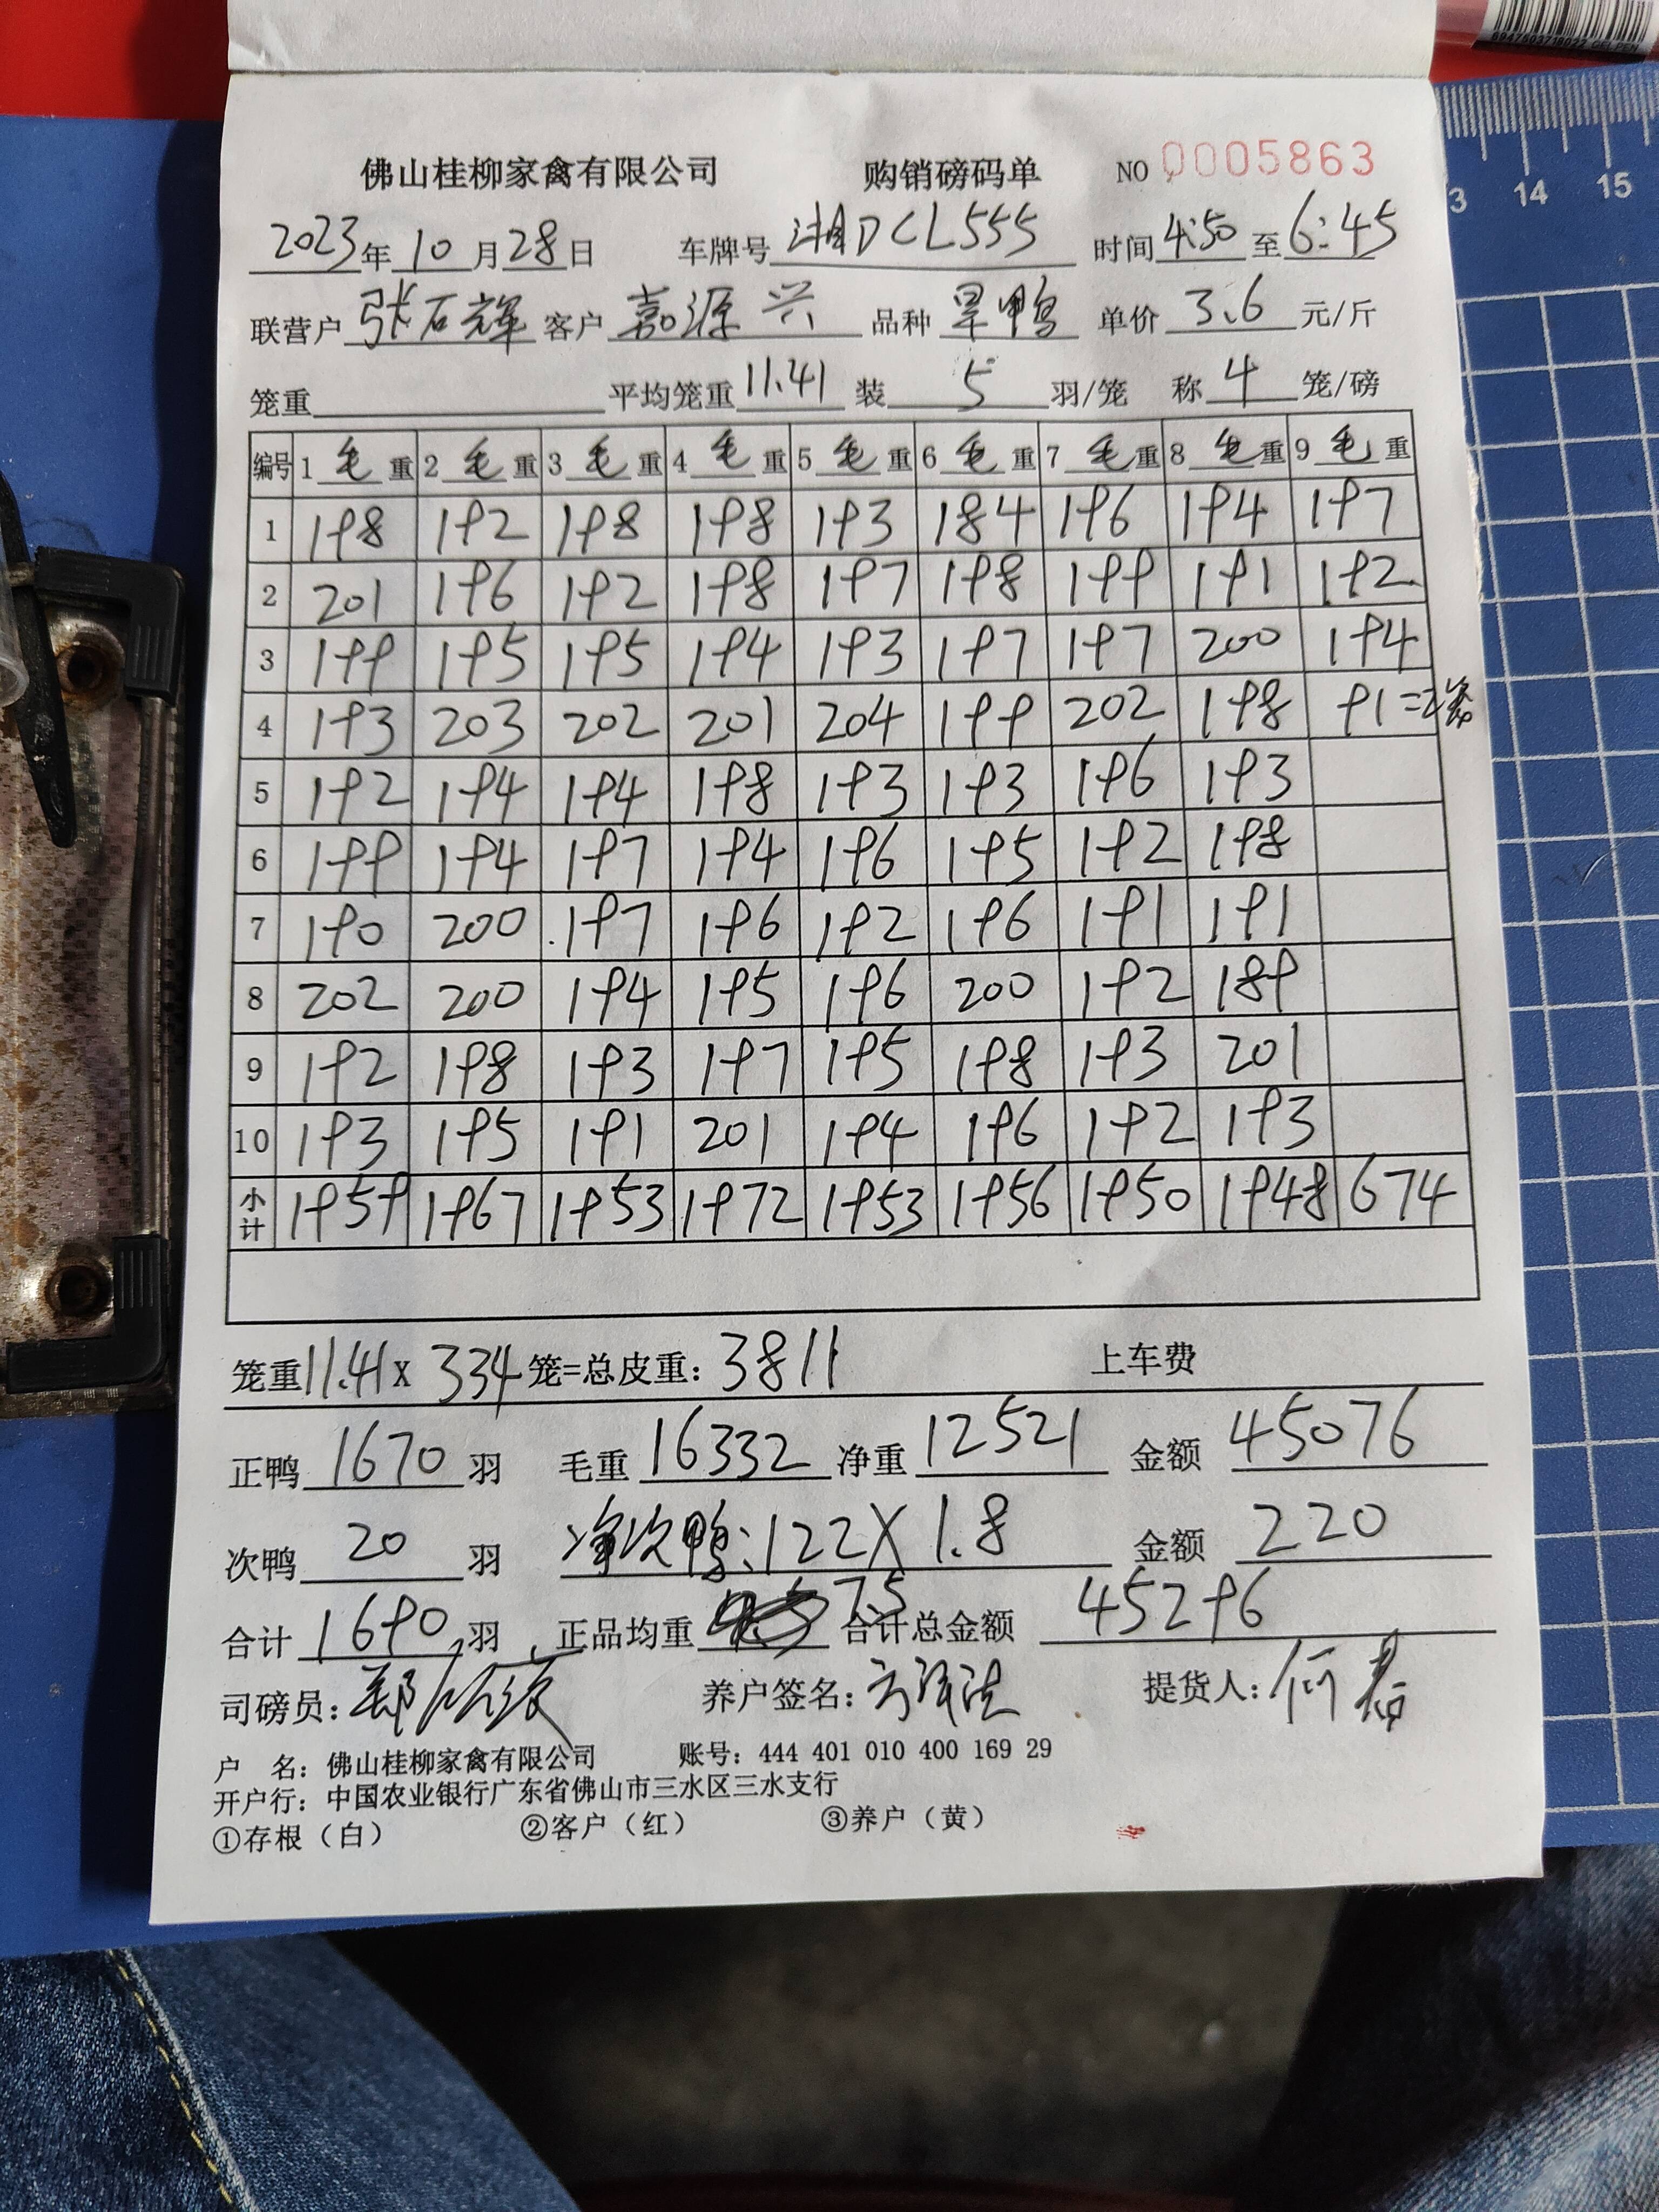 6947503716022 GEL PEN
3 14 15
佛山桂柳家禽有限公司 购销磅码单 NO 0005863
2023年10月28日 车牌号 湘DCL555 时间 4:50 至 6:45
联营户 张石辉 客户 嘉源兴 品种 旱鸭 单价 3.6 元/斤
笼重 平均笼重 11.41 装 5 羽/笼 称 4 笼/磅
编号 1 毛重 2 毛重 3 毛重 4 毛重 5 毛重 6 毛重 7 毛重 8 毛重 9 毛重
1 198 192 198 198 193 184 196 194 197
2 201 196 192 198 197 198 199 191 192
3 199 195 195 194 193 197 197 200 194
4 193 203 202 201 204 199 202 198 91=2笼
5 192 194 194 198 193 193 196 193
6 199 194 197 194 196 195 192 198
7 190 200 197 196 192 196 191 191
8 202 200 194 195 196 200 192 189
9 192 198 193 197 195 198 193 201
10 193 195 191 201 194 196 192 193
小计 1959 1967 1953 1972 1953 1956 1950 1948 674
笼重 11.41 X 334 笼=总皮重: 3811 上车费
正鸭 1670 羽 毛重 16332 净重 12521 金额 45076
次鸭 20 羽 净次鸭:122X1.8 金额 220
合计 1690 羽 正品均重 7.5 合计总金额 45296
司磅员: 养户签名: 提货人:
户 名: 佛山桂柳家禽有限公司 账号: 444 401 010 400 169 29
开户行: 中国农业银行广东省佛山市三水区三水支行
①存根（白） ②客户（红） ③养户（黄）